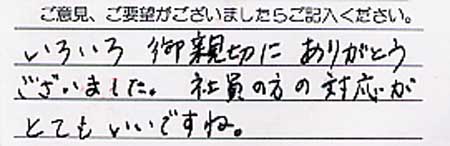 ご意見、ご要望がございましたらご記入ください。
いろいろ 御親切に ありがとう
ございました。 社員の方の対応が
とてもいいですね。